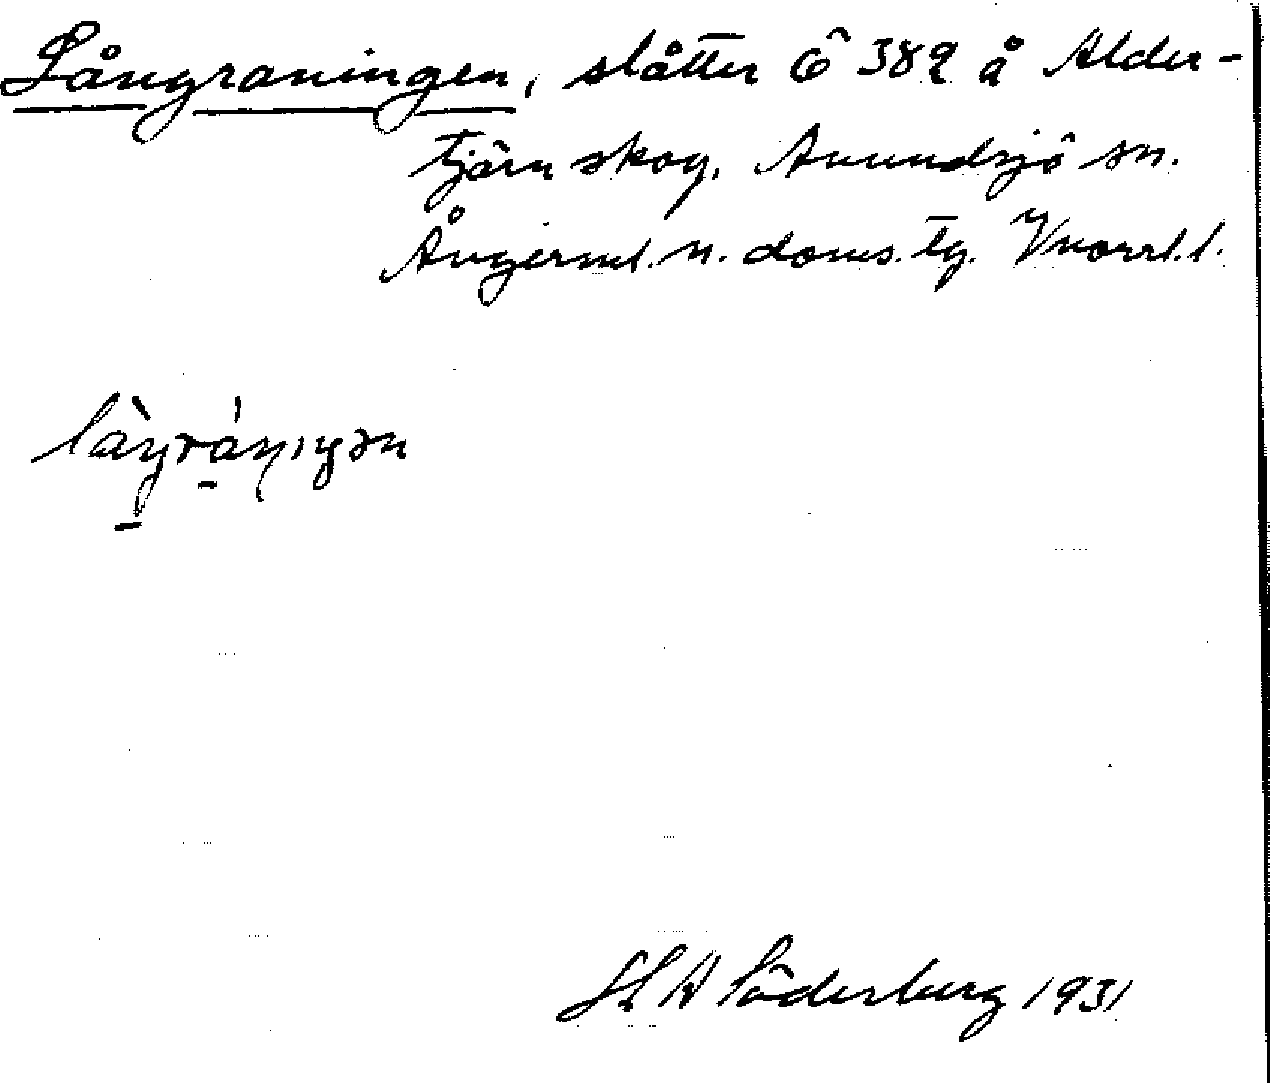 Långraningen, slåtter Ö 382 å Alder-
tjärn skog, Anundsjö sn.
Ångerml. n. doms. tg. Vnorrl. l.
låŋråniŋən
H A Söderberg 1931